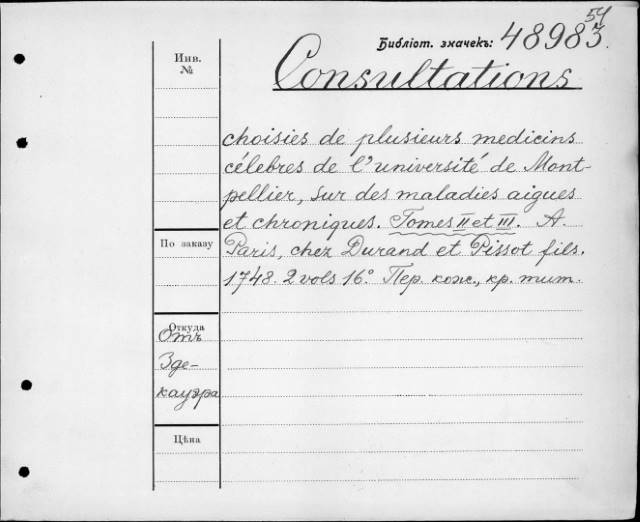 54
Библіот. значекъ: 48983.
Инв.
№
Consultations
choisies de plusieurs medicins
célebres de l'université de Mont-
pellier, sur des maladies aigues
et chroniques. Tomes II et III. A.
По заказу
Paris, chez Durand et Pissot fils.
1748. 2 vols 16°. Пер. кож., кр. тит.
Откуда
Отъ
Зде-
кауэра
Цѣна